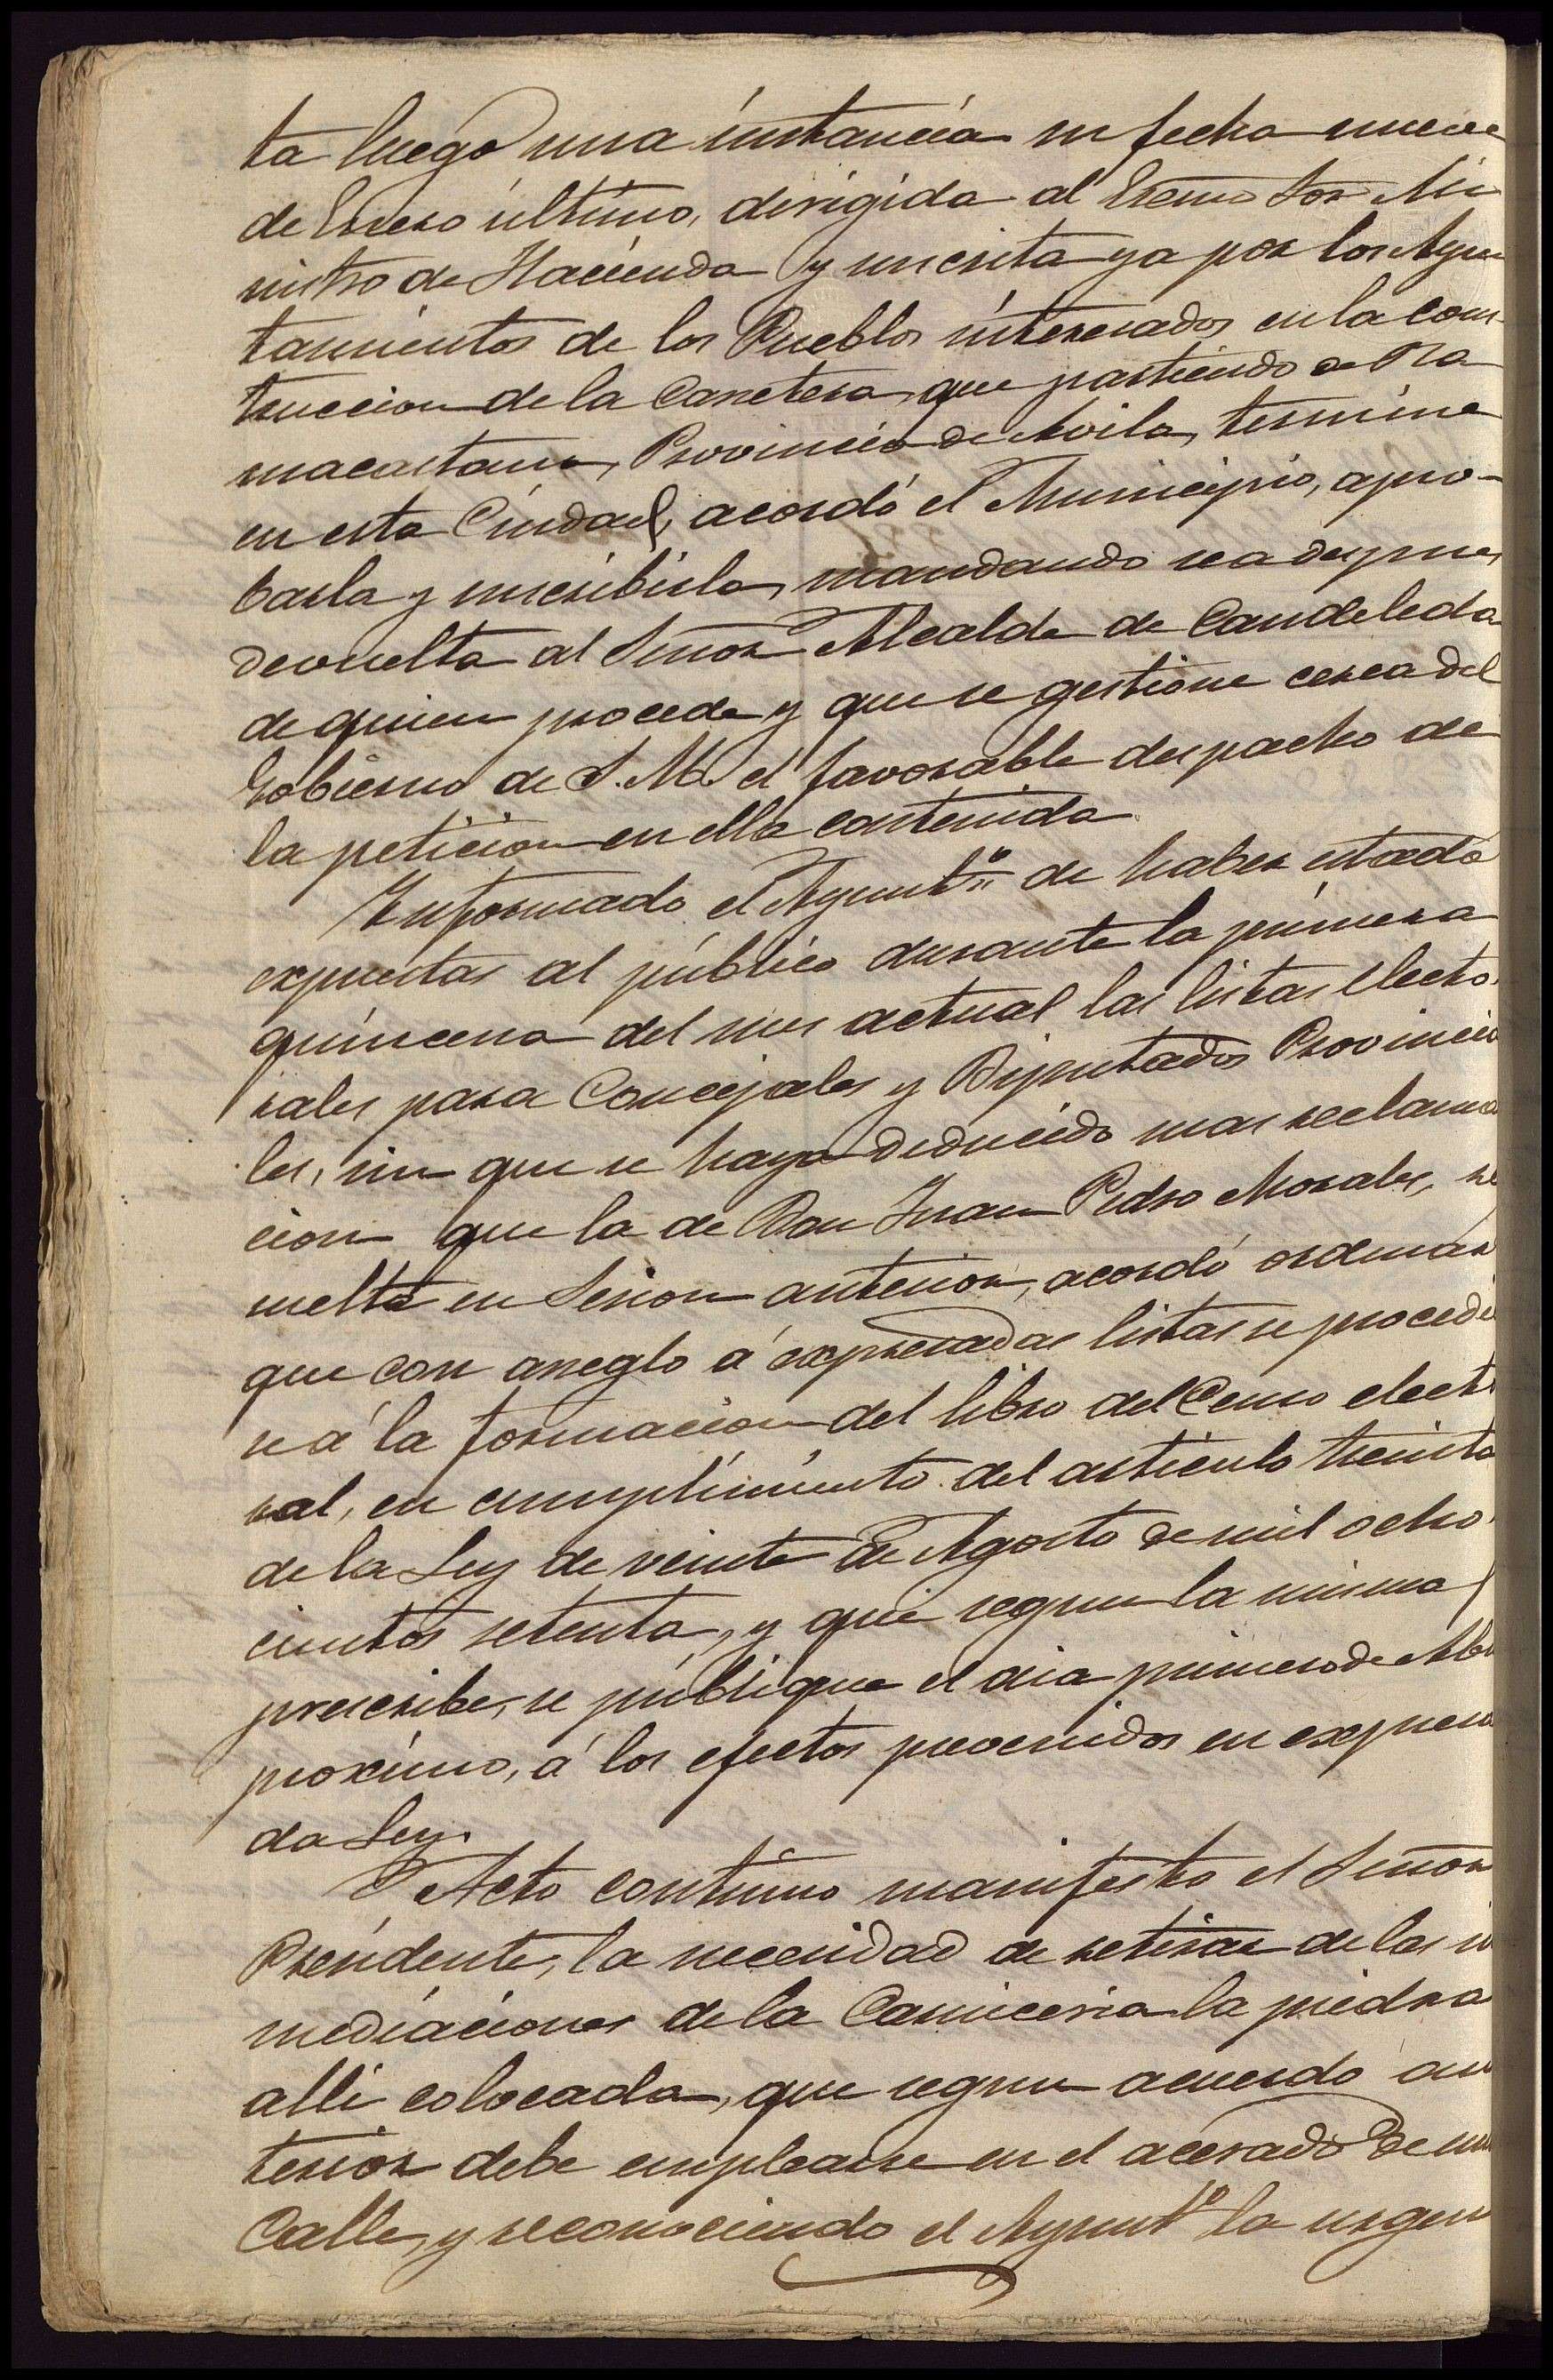 ta luego una instancia su fecha nueve
de Enero último, dirigida al Excmo Sor Mi
nistro de Hacienda y suscrita ya por los Ayun
tamientos de los Pueblos interesados en la cons
truccion de la Carretera, que partiendo de Ra
macastaña, Provincia de Avila, termina
en esta Ciudad, acordó el Municipio, apro-
barla y suscribirla, mandando sea despues
devuelta al Señor Alcalde de Candeleda
de quien procede y que se gestione cerca del
Gobierno de S. M. el favorable despacho de
la peticion en ella contenida.
Informado el Ayuntº de haber estado
expuestas al público durante la primera
quincena del mes actual las listas electo
rales para Concejales y Diputados Provincia
les, sin que se haya deducido mas reclama
cion que la de Don Juan Pedro Morales, re
suelta en Sesion anterior, acordó ordenar
que con arreglo á expresadas listas se procedie
se á la formacion del libro del Censo electo
ral, en cumplimiento del articulo treinta
de la Ley de veinte de Agosto de mil ocho
cientos setenta, y que segun la misma
prescribe, se publique el dia primero de Abri
proximo, á los efectos prevenidos en expresa
da Ley.
Acto continuo manifesto el Señor
Presidente, la necesidad de retirar de las in
mediaciones de la Carniceria la piedra
alli colocada, que segun acuerdo an
terior debe emplearse en el acerado de una
Calle, y reconociendo el Ayuntº la urgen